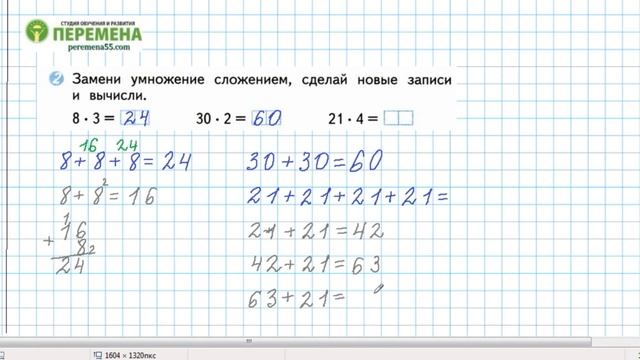 СТУДИЯ ОБУЧЕНИЯ И РАЗВИТИЯ
ПЕРЕМЕНА
peremena55.com
2 Замени умножение сложением, сделай новые записи
и вычисли.
8 · 3 = 24 30 · 2 = 60 21 · 4 =
16 24
8 + 8 + 8 = 24 30 + 30 = 60
8 + 8 2 = 16 21 + 21 + 21 + 21 =
1
16 21 + 21 = 42
+ 8 2
24 42 + 21 = 63
63 + 21 =
1604 × 1320пкс